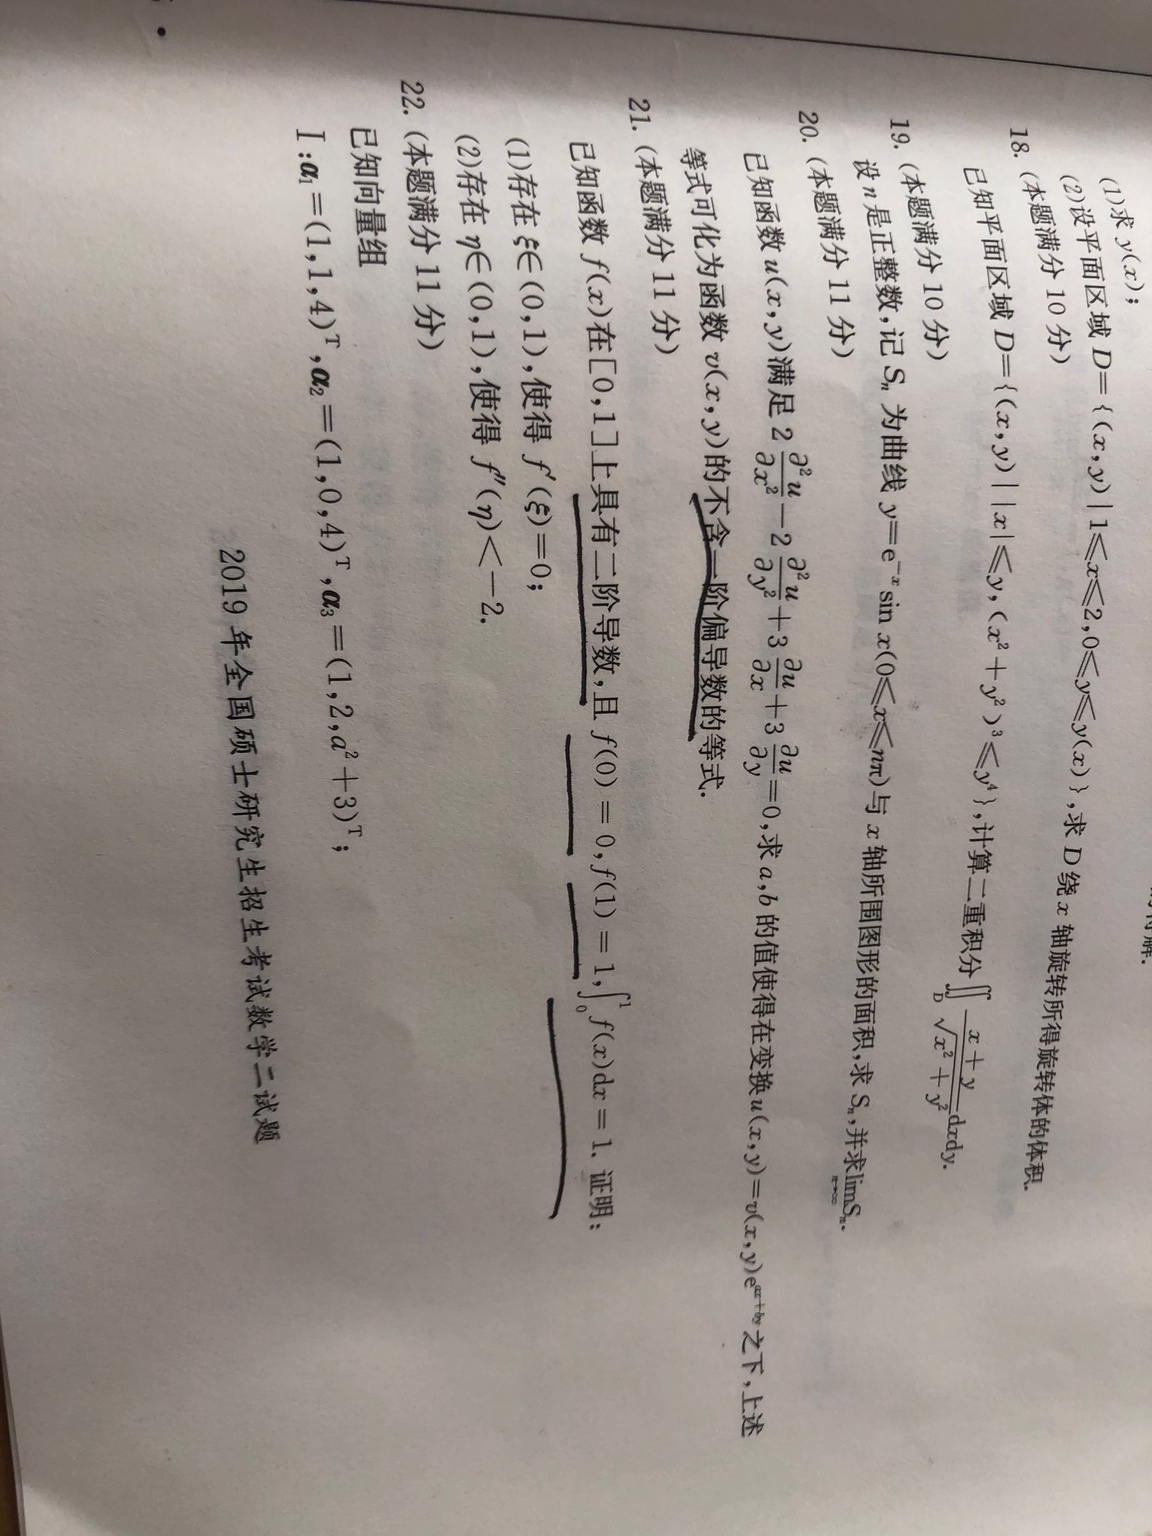 (1)求 y(x);
(2)设平面区域 D={(x,y)|1≤x≤2,0≤y≤y(x)},求 D 绕 x 轴旋转所得旋转体的体积.
18. (本题满分 10 分)
已知平面区域 D={(x,y)||x|≤y,(x²+y²)³≤y⁴},计算二重积分∬_D (x+y)/√(x²+y²) dxdy.
19. (本题满分 10 分)
设 n 是正整数,记 Sₙ 为曲线 y=e⁻ˣsin x(0≤x≤nπ)与 x 轴所围图形的面积,求 Sₙ,并求lim_{n→∞}Sₙ.
20. (本题满分 11 分)
已知函数 u(x,y)满足 2 ∂²u/∂x² −2 ∂²u/∂y² +3 ∂u/∂x +3 ∂u/∂y =0,求 a,b 的值使得在变换u(x,y)=v(x,y)e^{ax+by}之下,上述
等式可化为函数 v(x,y)的不含一阶偏导数的等式.
21. (本题满分 11 分)
已知函数 f(x)在[0,1]上具有二阶导数,且 f(0)=0,f(1)=1,∫₀¹ f(x)dx=1.证明:
(1)存在 ξ∈(0,1),使得 f′(ξ)=0;
(2)存在 η∈(0,1),使得 f″(η)<−2.
22. (本题满分 11 分)
已知向量组
Ⅰ:α₁=(1,1,4)ᵀ,α₂=(1,0,4)ᵀ,α₃=(1,2,a²+3)ᵀ;
2019 年全国硕士研究生招生考试数学二试题